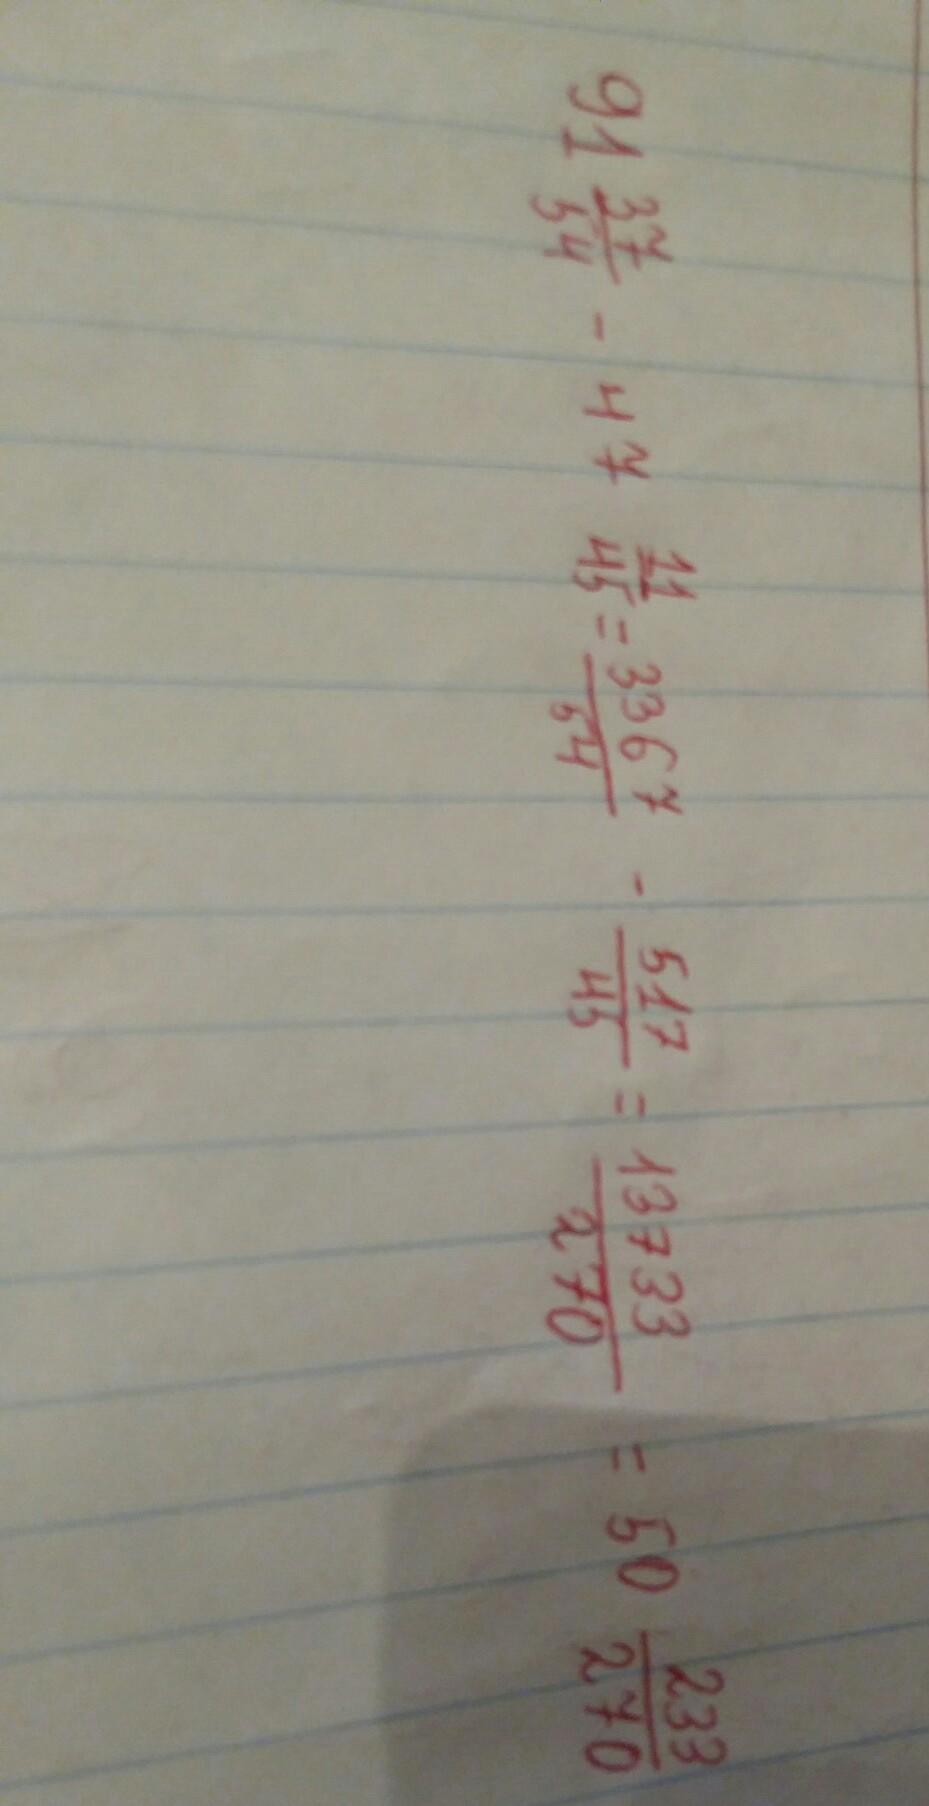 91 37/54 - 47 11/45 = 3367/54 - 517/45 = 13733/270 = 50 233/270